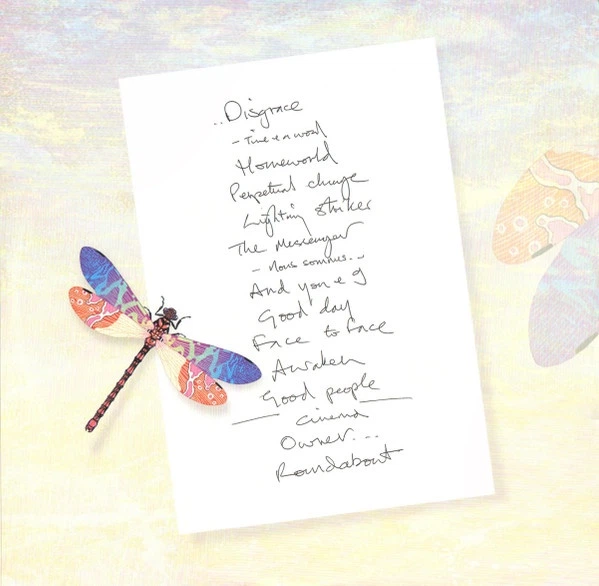 ..Disgrace
- Time & a word
Homeworld
Perpetual change
Lighting striker
The Messenger
- Nous sommes..-
And you & I
Good day
Face to face
Awaken
Good people
cinema
Owner...
Roundabout